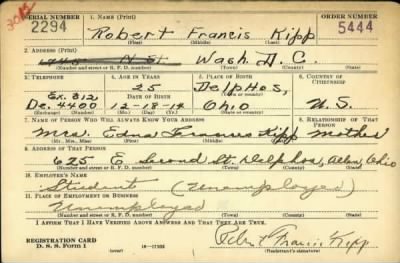 SERIAL NUMBER 1. NAME (Print) ORDER NUMBER
2294 Robert Francis Kipp 5444
(First) (Middle) (Last)
2. ADDRESS (Print)
N St. Wash. D. C.
(Number and street or R. F. D. number) (Town) (County) (State)
3. TELEPHONE 4. AGE IN YEARS 5. PLACE OF BIRTH 6. COUNTRY OF CITIZENSHIP
Ex. 312 25 Delphos,
DATE OF BIRTH (Town or county)
De. 4400 12-18-14 Ohio U. S.
(Exchange) (Number) (Mo.) (Day) (Yr.) (State or country)
7. NAME OF PERSON WHO WILL ALWAYS KNOW YOUR ADDRESS 8. RELATIONSHIP OF THAT PERSON
Mrs. Edna Frances Kipp Mother
(Mr., Mrs., Miss) (First) (Middle) (Last)
9. ADDRESS OF THAT PERSON
625 E. Second St. Delphos, Allen, Ohio
(Number and street or R. F. D. number) (Town) (County) (State)
10. EMPLOYER'S NAME
Student (Unemployed)
11. PLACE OF EMPLOYMENT OR BUSINESS
Unemployed
(Number and street or R. F. D. number) (Town) (County) (State)
I AFFIRM THAT I HAVE VERIFIED ABOVE ANSWERS AND THAT THEY ARE TRUE.
REGISTRATION CARD
D. S. S. Form 1 Robert Francis Kipp
(Registrant's signature)